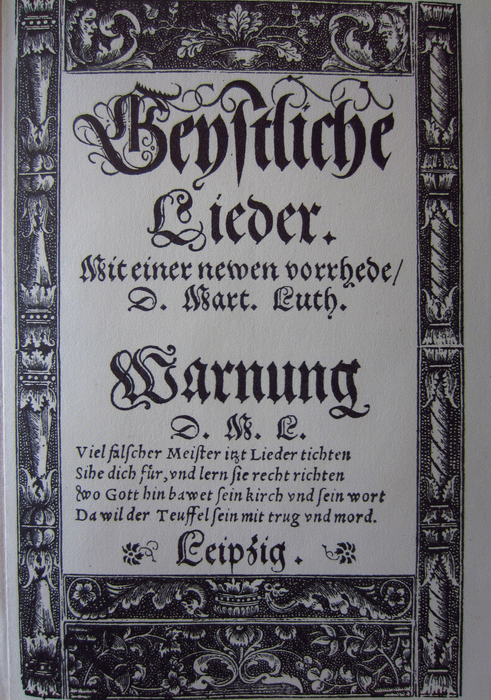 Geyſtliche
Lieder.
Mit einer newen vorrhede/
D. Mart. Luth.
Warnung
D. M. L.
Viel falſcher Meiſter itzt Lieder tichten
Sihe dich für, vnd lern ſie recht richten
Wo Gott hin bawet ſein kirch vnd ſein wort
Da wil der Teuffel ſein mit trug vnd mord.
Leipzig.